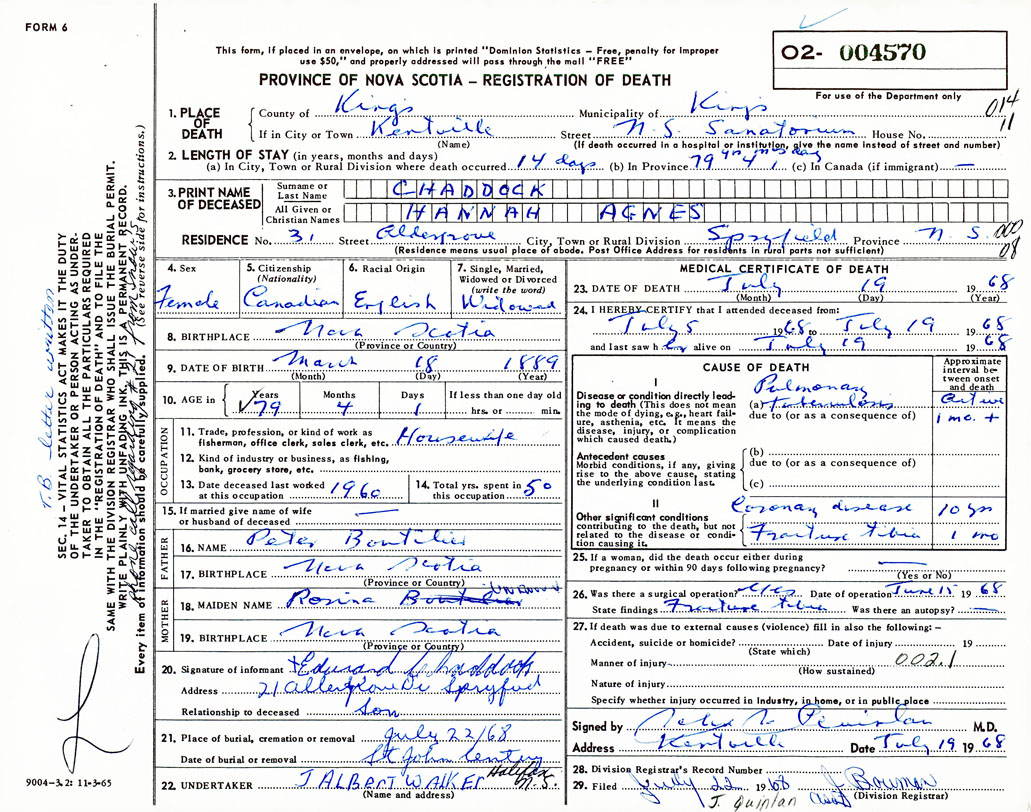 FORM 6
This form, if placed in an envelope, on which is printed "Dominion Statistics – Free, penalty for improper
use $50," and properly addressed will pass through the mail "FREE"
PROVINCE OF NOVA SCOTIA – REGISTRATION OF DEATH
O2- 004570
For use of the Department only
014
11
1. PLACE OF DEATH
County of Kings Municipality of Kings
If in City or Town Kentville Street N. S. Sanatorium House No.
(Name) (If death occurred in a hospital or institution, give the name instead of street and number)
2. LENGTH OF STAY (in years, months and days)
(a) In City, Town or Rural Division where death occurred 14 days (b) In Province 79 yrs 4 mos 1 day (c) In Canada (if immigrant) —
3. PRINT NAME OF DECEASED
Surname or Last Name CHADDOCK
All Given or Christian Names HANNAH AGNES
RESIDENCE No. 31 Street Aldergrove City, Town or Rural Division Spryfield Province N. S.
(Residence means usual place of abode. Post Office Address for residents in rural parts not sufficient)
000
08
4. Sex Female
5. Citizenship (Nationality) Canadian
6. Racial Origin English
7. Single, Married, Widowed or Divorced (write the word) Widowed
8. BIRTHPLACE Nova Scotia
(Province or Country)
9. DATE OF BIRTH March 18 1889
(Month) (Day) (Year)
10. AGE in Years Months Days If less than one day old
79 4 1 hrs. or min.
OCCUPATION
11. Trade, profession, or kind of work as
fisherman, office clerk, sales clerk, etc. Housewife
12. Kind of industry or business, as fishing,
bank, grocery store, etc.
13. Date deceased last worked at this occupation 1960
14. Total yrs. spent in this occupation 50
15. If married give name of wife
or husband of deceased —
FATHER
16. NAME Peter Boutilier
17. BIRTHPLACE Nova Scotia
(Province or Country)
MOTHER
18. MAIDEN NAME Rosina Boutilier
19. BIRTHPLACE Nova Scotia
(Province or Country)
20. Signature of informant Edward Chaddock
Address 21 Spryfield
Relationship to deceased Son
21. Place of burial, cremation or removal July 22/68
Date of burial or removal St John Cemetery
22. UNDERTAKER J ALBERT WALKER Halifax N.S.
(Name and address)
MEDICAL CERTIFICATE OF DEATH
23. DATE OF DEATH July 19 1968
(Month) (Day) (Year)
24. I HEREBY CERTIFY that I attended deceased from:
July 5 1968 to July 19 1968
and last saw her alive on July 19 1968
CAUSE OF DEATH
Approximate interval between onset and death
I
Disease or condition directly leading to death (This does not mean the mode of dying, e.g., heart failure, asthenia, etc. It means the disease, injury, or complication which caused death.)
(a) Pulmonary tuberculosis Active
due to (or as a consequence of) 1 mo. +
Antecedent causes
Morbid conditions, if any, giving rise to the above cause, stating the underlying condition last.
(b)
due to (or as a consequence of)
(c)
II
Other significant conditions contributing to the death, but not related to the disease or condition causing it.
Coronary disease 10 yrs
Fracture tibia 1 mo
25. If a woman, did the death occur either during
pregnancy or within 90 days following pregnancy? —
(Yes or No)
26. Was there a surgical operation? Yes Date of operation June 15 1968
State findings Fracture tibia Was there an autopsy? —
27. If death was due to external causes (violence) fill in also the following: –
Accident, suicide or homicide? Date of injury 19
(State which)
Manner of injury 002.1
(How sustained)
Nature of injury
Specify whether injury occurred in Industry, in home, or in public place
Signed by Quinlan M.D.
Address Kentville Date July 19 1968
28. Division Registrar's Record Number
29. Filed July 22 1968 J. Bowman
(Division Registrar)
J. Quinlan
9004-3.2: 11-3-65
T.B letter written
SEC. 14 – VITAL STATISTICS ACT MAKES IT THE DUTY
OF THE UNDERTAKER OR PERSON ACTING AS UNDER-
TAKER TO OBTAIN ALL THE PARTICULARS REQUIRED
IN THE "REGISTRATION OF DEATH" AND TO FILE THE
SAME WITH THE DIVISION REGISTRAR WHO SHALL ISSUE THE BURIAL PERMIT.
WRITE PLAINLY WITH UNFADING INK, THIS IS A PERMANENT RECORD.
Every item of information should be carefully supplied. (See reverse side for instructions.)